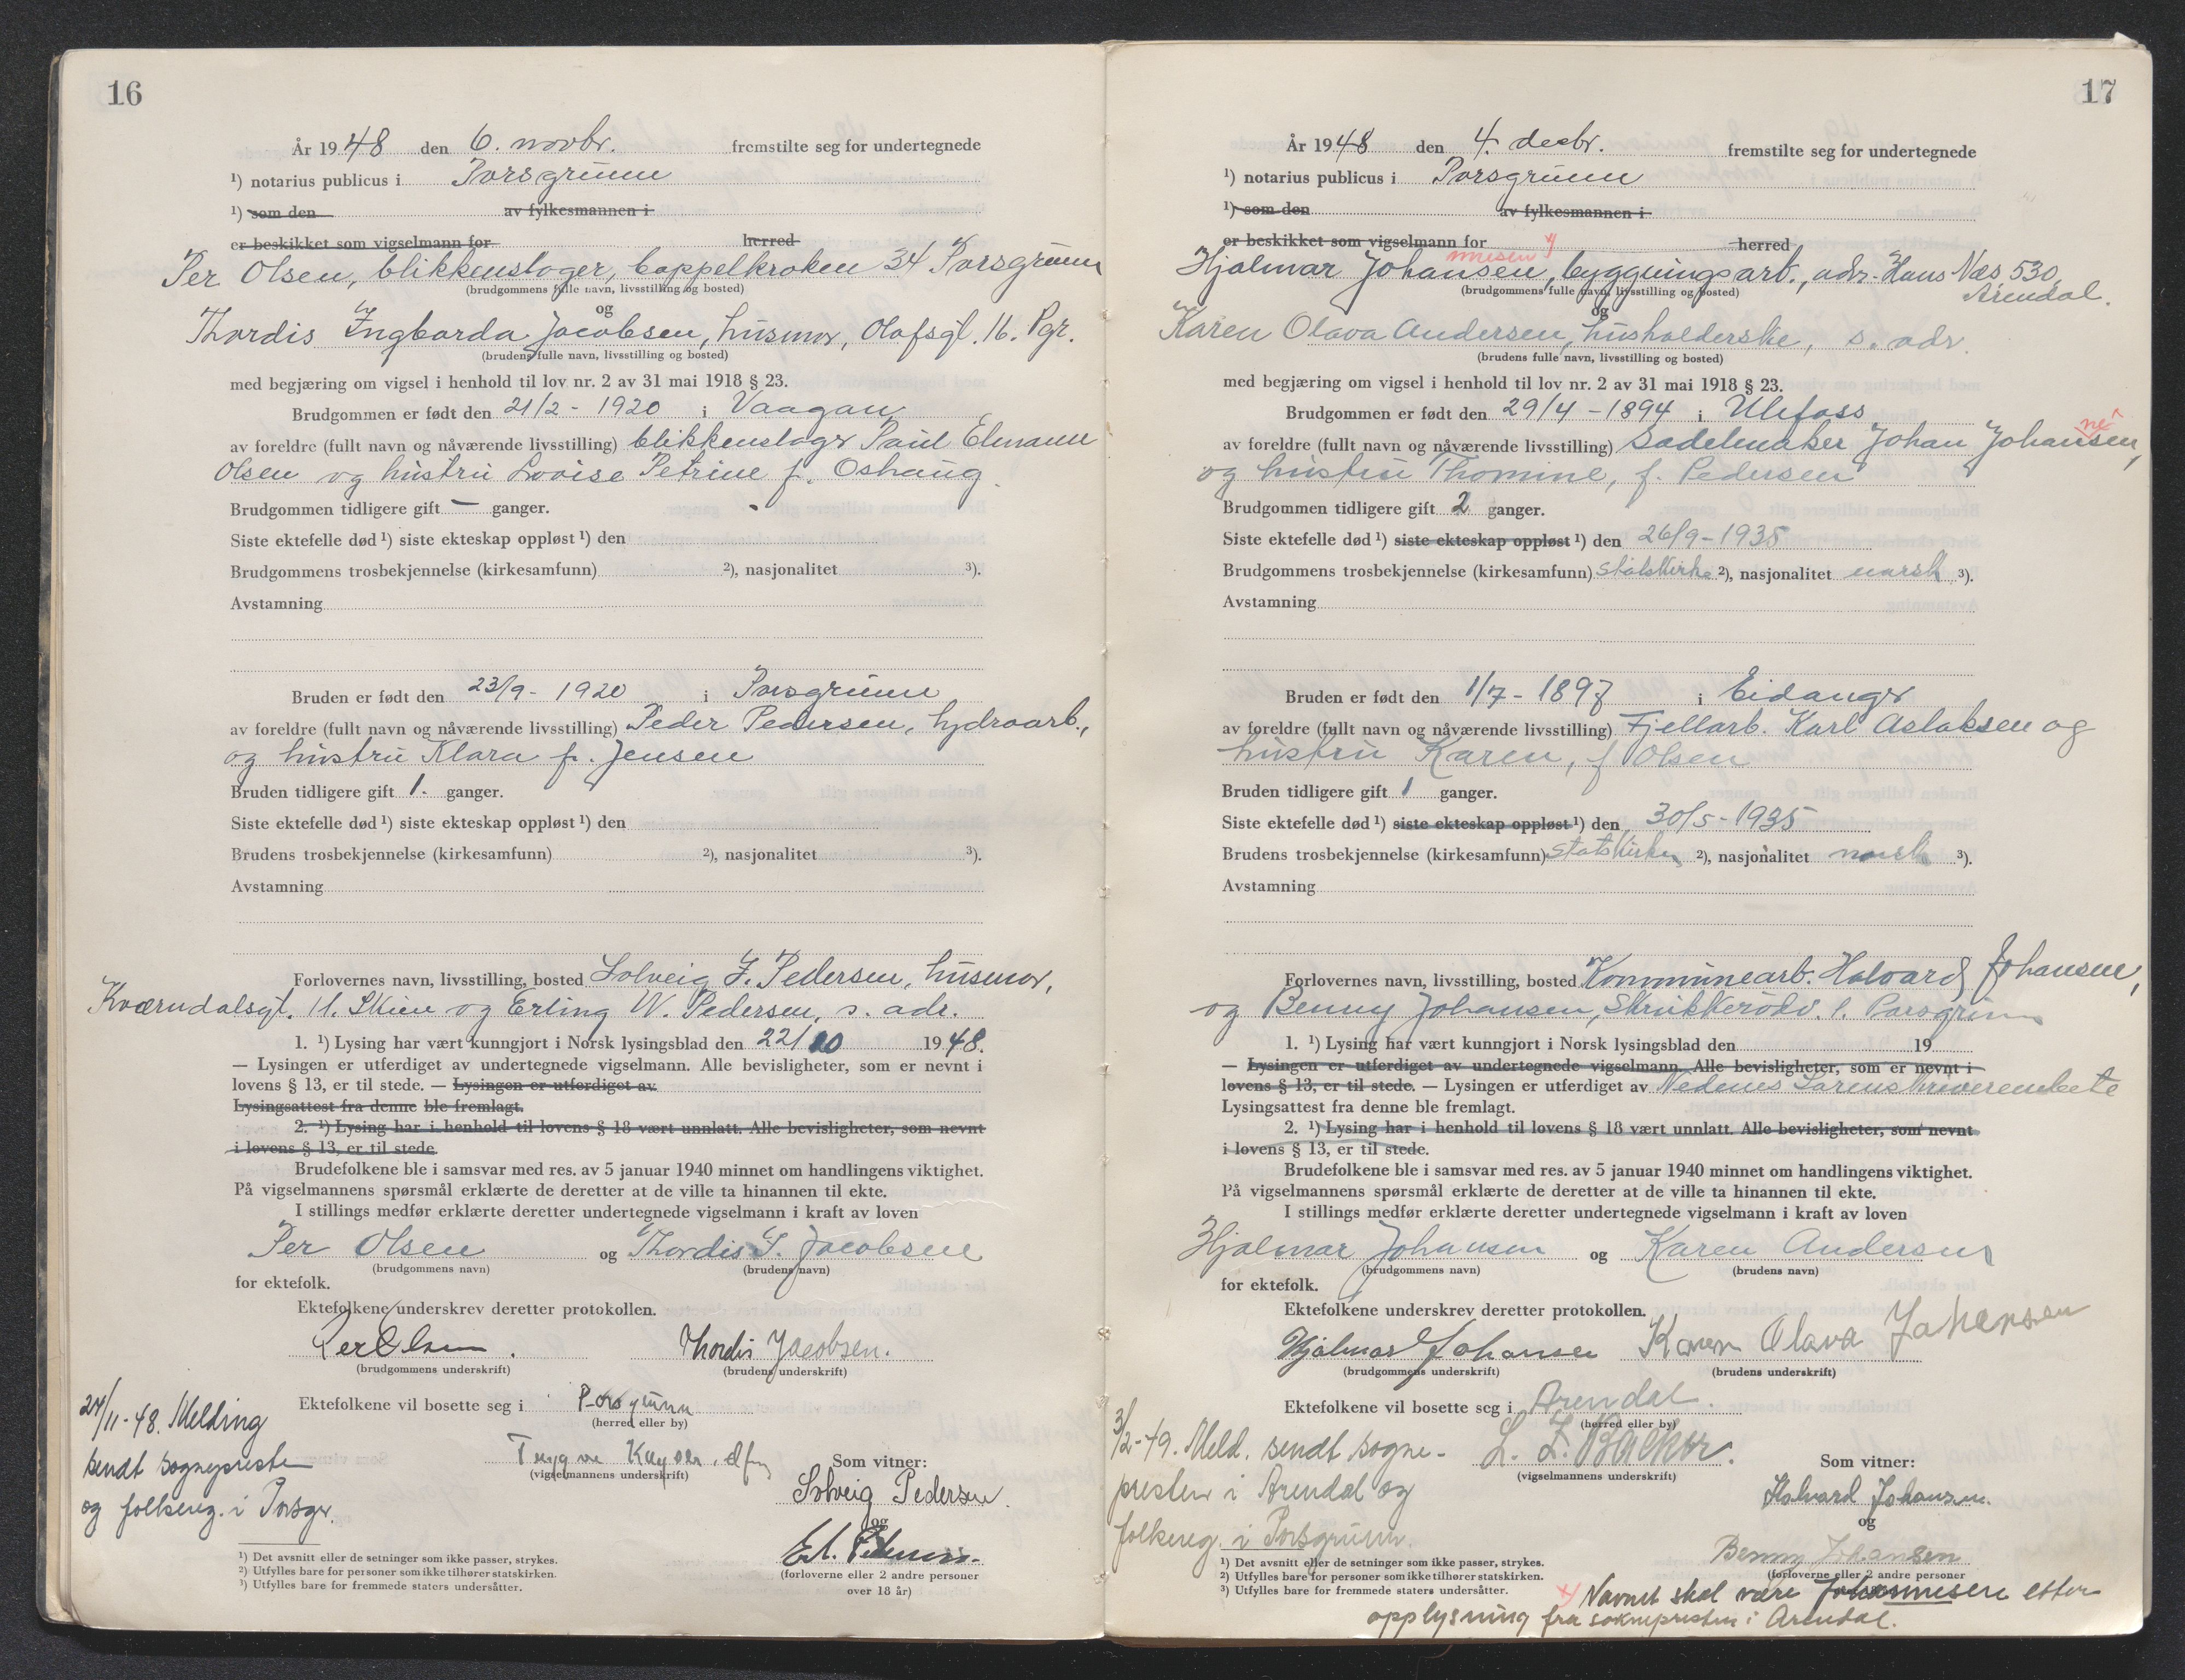 16
År 1948 den 6. novbr. fremstilte seg for undertegnede
¹) notarius publicus i Porsgrunn
¹) som den av fylkesmannen i
er beskikket som vigselmann for herred
Per Olsen, blikkenslager, Coppelkroken 34 Porsgrunn
(brudgommens fulle navn, livsstilling og bosted)
og
Thordis Ingborda Jacobsen, husmor, Olafsgt. 16. Pgr.
(brudens fulle navn, livsstilling og bosted)
med begjæring om vigsel i henhold til lov nr. 2 av 31 mai 1918 § 23.
Brudgommen er født den 21/2 - 1920 i Vaagan
av foreldre (fullt navn og nåværende livsstilling) blikkenslager Paul Elmann
Olsen og hustru Lovise Petrine f. Oshaug
Brudgommen tidligere gift — ganger.
Siste ektefelle død ¹) siste ekteskap oppløst ¹) den
Brudgommens trosbekjennelse (kirkesamfunn) ²), nasjonalitet ³).
Avstamning
Bruden er født den 23/9 - 1920 i Porsgrunn
av foreldre (fullt navn og nåværende livsstilling) Peder Pedersen, hydroarb.,
og hustru Klara f. Jensen
Bruden tidligere gift 1. ganger.
Siste ektefelle død ¹) siste ekteskap oppløst ¹) den
Brudens trosbekjennelse (kirkesamfunn) ²), nasjonalitet ³).
Avstamning
Forlovernes navn, livsstilling, bosted Solveig I. Pedersen, husmor,
Kværndalsgt. 11. Skien og Erling W. Pedersen, s. adr.
1. ¹) Lysing har vært kunngjort i Norsk lysingsblad den 22/10 1948.
— Lysingen er utferdiget av undertegnede vigselmann. Alle bevisligheter, som er nevnt i
lovens § 13, er til stede. — Lysingen er utferdiget av
Lysingsattest fra denne ble fremlagt.
2. ¹) Lysing har i henhold til lovens § 18 vært unnlatt. Alle bevisligheter, som nevnt
i lovens § 13, er til stede
Brudefolkene ble i samsvar med res. av 5 januar 1940 minnet om handlingens viktighet.
På vigselmannens spørsmål erklærte de deretter at de ville ta hinannen til ekte.
I stillings medfør erklærte deretter undertegnede vigselmann i kraft av loven
Per Olsen og Thordis I. Jacobsen
(brudgommens navn) (brudens navn)
for ektefolk.
Ektefolkene underskrev deretter protokollen.
Per Olsen. Thordis Jacobsen.
(brudgommens underskrift) (brudens underskrift)
Ektefolkene vil bosette seg i Porsgrunn
(herred eller by)
24/11-48. Melding
sendt sogneprest
og folkereg. i Porsgr.
Trygve
(vigselmannens underskrift)
Som vitner:
Solveig Pedersen.
og
Pedersen.
(forloverne eller 2 andre personer
over 18 år)
¹) Det avsnitt eller de setninger som ikke passer, strykes.
²) Utfylles bare for personer som ikke tilhører statskirken.
³) Utfylles bare for fremmede staters undersåtter.
17
År 1948 den 4. decbr. fremstilte seg for undertegnede
¹) notarius publicus i Porsgrunn
¹) som den av fylkesmannen i
er beskikket som vigselmann for herred
Hjalmar Johansen, bygningsarb., adr. Hans Næs, 530, Arendal.
(brudgommens fulle navn, livsstilling og bosted)
og
Karen Olava Andersen, husholderske, s. adr.
(brudens fulle navn, livsstilling og bosted)
med begjæring om vigsel i henhold til lov nr. 2 av 31 mai 1918 § 23.
Brudgommen er født den 29/4 - 1894 i Ulefoss
av foreldre (fullt navn og nåværende livsstilling) Sadelmaker Johan Johansen,
og hustru Thomine, f. Pedersen
Brudgommen tidligere gift 2 ganger.
Siste ektefelle død ¹) siste ekteskap oppløst ¹) den 26/9 - 1935
Brudgommens trosbekjennelse (kirkesamfunn) Statskirke ²), nasjonalitet norsk ³).
Avstamning
Bruden er født den 1/7 - 1897 i Eidanger
av foreldre (fullt navn og nåværende livsstilling) Fjellarb. Karl Aslaksen og
hustru Karen, f. Olsen
Bruden tidligere gift 1 ganger.
Siste ektefelle død ¹) siste ekteskap oppløst ¹) den 30/5 - 1935
Brudens trosbekjennelse (kirkesamfunn) Statskirken ²), nasjonalitet norsk ³).
Avstamning
Forlovernes navn, livsstilling, bosted Kommunearb. Halvard Johansen,
og Benny Johansen, Skrukkerødv. 1. Porsgrunn
1. ¹) Lysing har vært kunngjort i Norsk lysingsblad den 19
— Lysingen er utferdiget av undertegnede vigselmann. Alle bevisligheter, som er nevnt i
lovens § 13, er til stede. — Lysingen er utferdiget av Nedenes Sorenskriverembete
Lysingsattest fra denne ble fremlagt.
2. ¹) Lysing har i henhold til lovens § 18 vært unnlatt. Alle bevisligheter, som nevnt
i lovens § 13, er til stede.
Brudefolkene ble i samsvar med res. av 5 januar 1940 minnet om handlingens viktighet.
På vigselmannens spørsmål erklærte de deretter at de ville ta hinannen til ekte.
I stillings medfør erklærte deretter undertegnede vigselmann i kraft av loven
Hjalmar Johansen og Karen Andersen
(brudgommens navn) (brudens navn)
for ektefolk.
Ektefolkene underskrev deretter protokollen.
Hjalmar Johansen Karen Olava Johansen
(brudgommens underskrift) (brudens underskrift)
Ektefolkene vil bosette seg i Arendal.
(herred eller by)
3/2-49. Meld. sendt sogne-
presten i Arendal og
folkereg. i Porsgrunn.
(vigselmannens underskrift)
Som vitner:
Halvard Johansen.
og
Benny Johansen
(forloverne eller 2 andre personer
¹) Det avsnitt eller de setninger som ikke passer, strykes.
²) Utfylles bare for personer som ikke tilhører statskirken.
³) Utfylles bare for fremmede staters undersåtter.
Navnet skal være Johannesen etter
opplysning fra sokнepresten i Arendal.